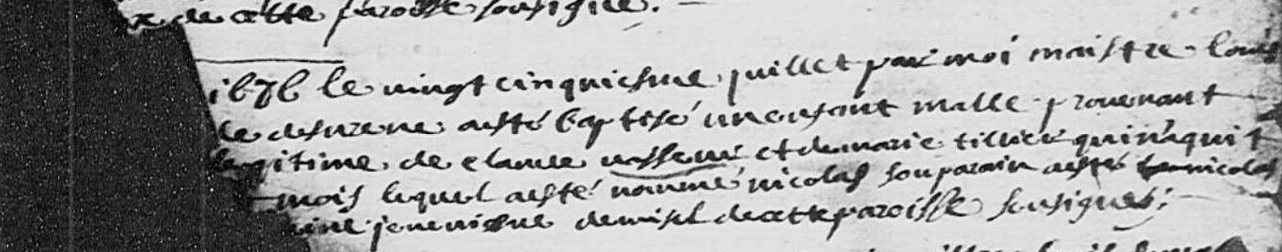 de cette paroisse sousigne.
1676 le vingt cinquiesme juillet par moi maistre louis
aesté baptisé un enfant malle provenant
legitime de claude vasseur et de marie tillier qui naquit
mois lequel aesté nommé nicolas son parain aesté nicolas
jenevieve demisel de cette paroisse sousignes.